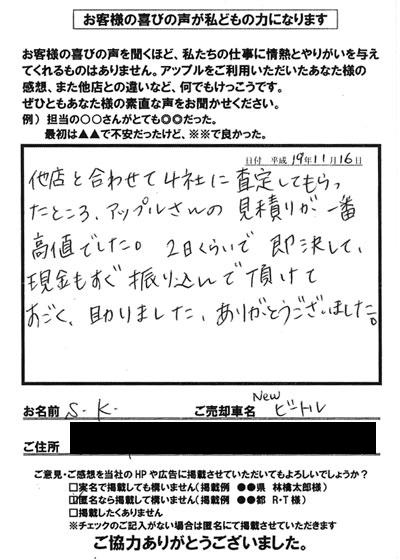 お客様の喜びの声が私どもの力になります
お客様の喜びの声を聞くほど、私たちの仕事に情熱とやりがいを与え
てくれるものはありません。アップルをご利用いただいたあなた様の
感想、また他店との違いなど、何でもけっこうです。
ぜひともあなた様の素直な声をお聞かせください。
例）担当の○○さんがとても◎◎だった。
最初は▲▲で不安だったけど、※※で良かった。
日付 平成 19年11月16日
他店と合わせて4社に査定してもらっ
たところ、アップルさんの見積りが一番
高値でした。2日くらいで即決して、
現金もすぐ振り込んで頂けて
すごく、助かりました、ありがとうございました。
お名前 S.K. ご売却車名 New ビートル
ご住所
ご意見・ご感想を当社のHPや広告に掲載させていただいてもよろしいでしょうか？
□実名で掲載しても構いません（掲載例 ●●県 林檎太郎様）
☑匿名なら掲載して構いません（掲載例 ●●都 R・T様）
□掲載したくありません
※チェックのご記入がない場合は匿名にて掲載させていただきます
ご協力ありがとうございました。